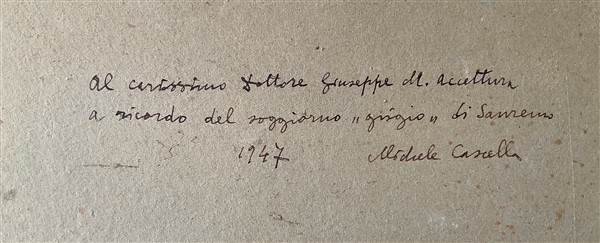 Al carissimo Dottore Giuseppe M. Accettura
a ricordo del soggiorno „ grigio „ di Sanremo
1947 Michele Cascella